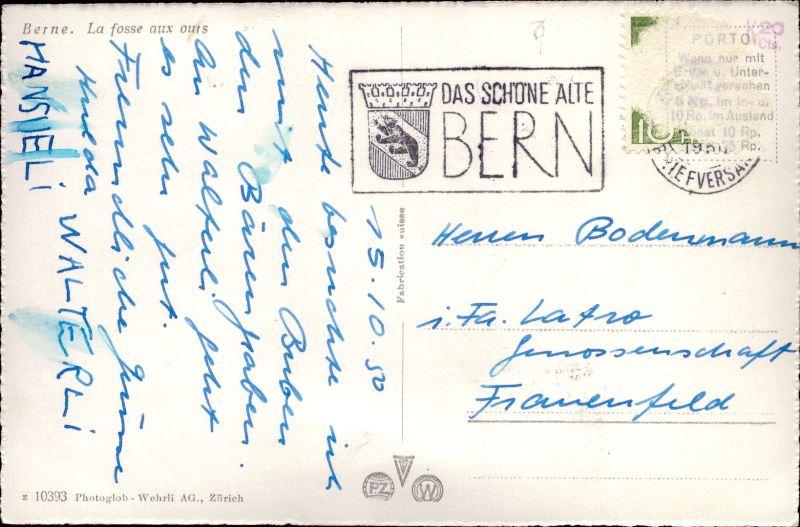 Berne. La fosse aux ours
15.10.50
Heute besuchte ich
mit den Buben
den Bärengraben.
An Walterli geht
es sehr gut.
Freundliche Grüsse
Hulda WALTERLI
HANSUELI
z 10393 Photoglob-Wehrli AG., Zürich
Fabrication suisse
PZ
W
DAS SCHÖNE ALTE
BERN
PORTO
Wenn nur mit
Gruss u. Unter-
schrift versehen
5 Rp. im In- u.
10 Rp. im Ausland
sonst 10 Rp.
20
Cts.
10
BRIEFVERSAND
Herren Bodenmann
i. Fa. Latro
Genossenschaft
Frauenfeld